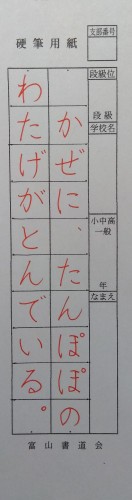 支部番号
硬筆用紙
段級位
段級
学校名
小中高
一般
年
なまえ
かぜに、たんぽぽの
わたげがとんでいる。
富山書道会